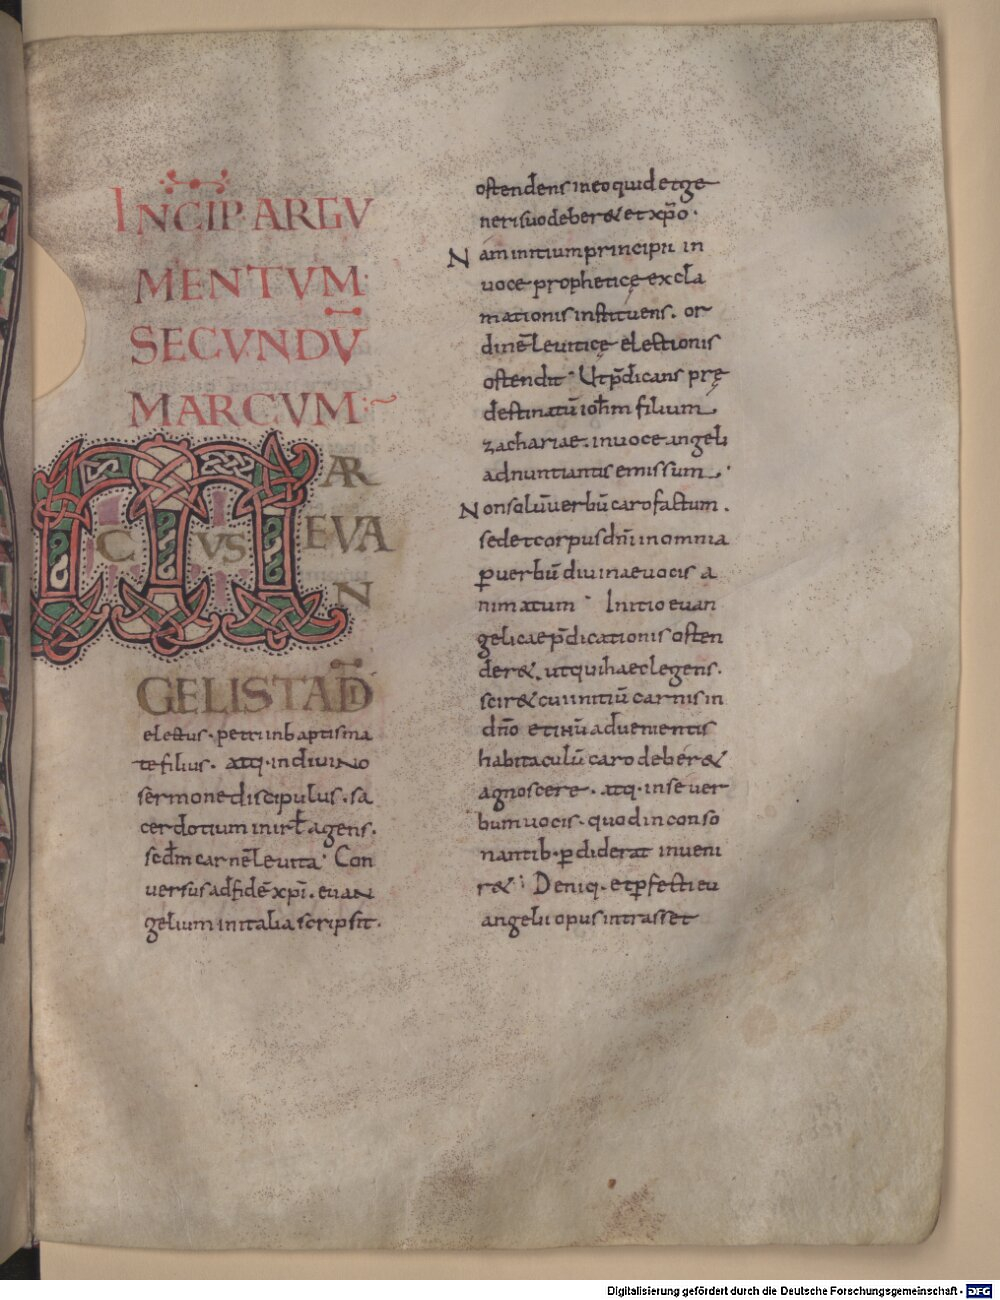 INCIP̅ ARGV
MENTVM·
SECVNDV̅
MARCVM·
MAR
CVS EVA
N
GELISTA D̅I
electus· petri in baptisma
te filius· atq· in divino
sermone discipulus· sa
cerdotium in irƚ agens·
scd̅m carne̅ levita· Con
versus ad fide̅ xp̅i· evan
gelium in italia scripsit·
ostendens in eo quid et ge
neri suo deber& et xp̅o·
Nam initium principii in
voce propheticę excla
mationis instituens· or
dine̅ leviticę electionis
ostendit· Ut p̅dicans prę
destinatu̅ ioh̅m filium
zachariae· in voce angeli
adnuntiantis emissum·
Non solu̅ verbu̅ caro factum·
sed et corpus dn̅i in omnia
p̲ verbu̅ divinae vocis a
nimatum· Initio evan
gelicae p̅dicationis osten
der&· ut qui haec legens·
scir& cui initiu̅ carnis in
dn̅o et ihu̅ advenientis
habitaculu̅ caro deber&
agnoscere· atq· in se ver
bum vocis· quod in conso
nantib· p̲diderat inveni
r&· Deniq· et p̲fecti eu
angelii opus intrasset
Digitalisierung gefördert durch die Deutsche Forschungsgemeinschaft - DFG